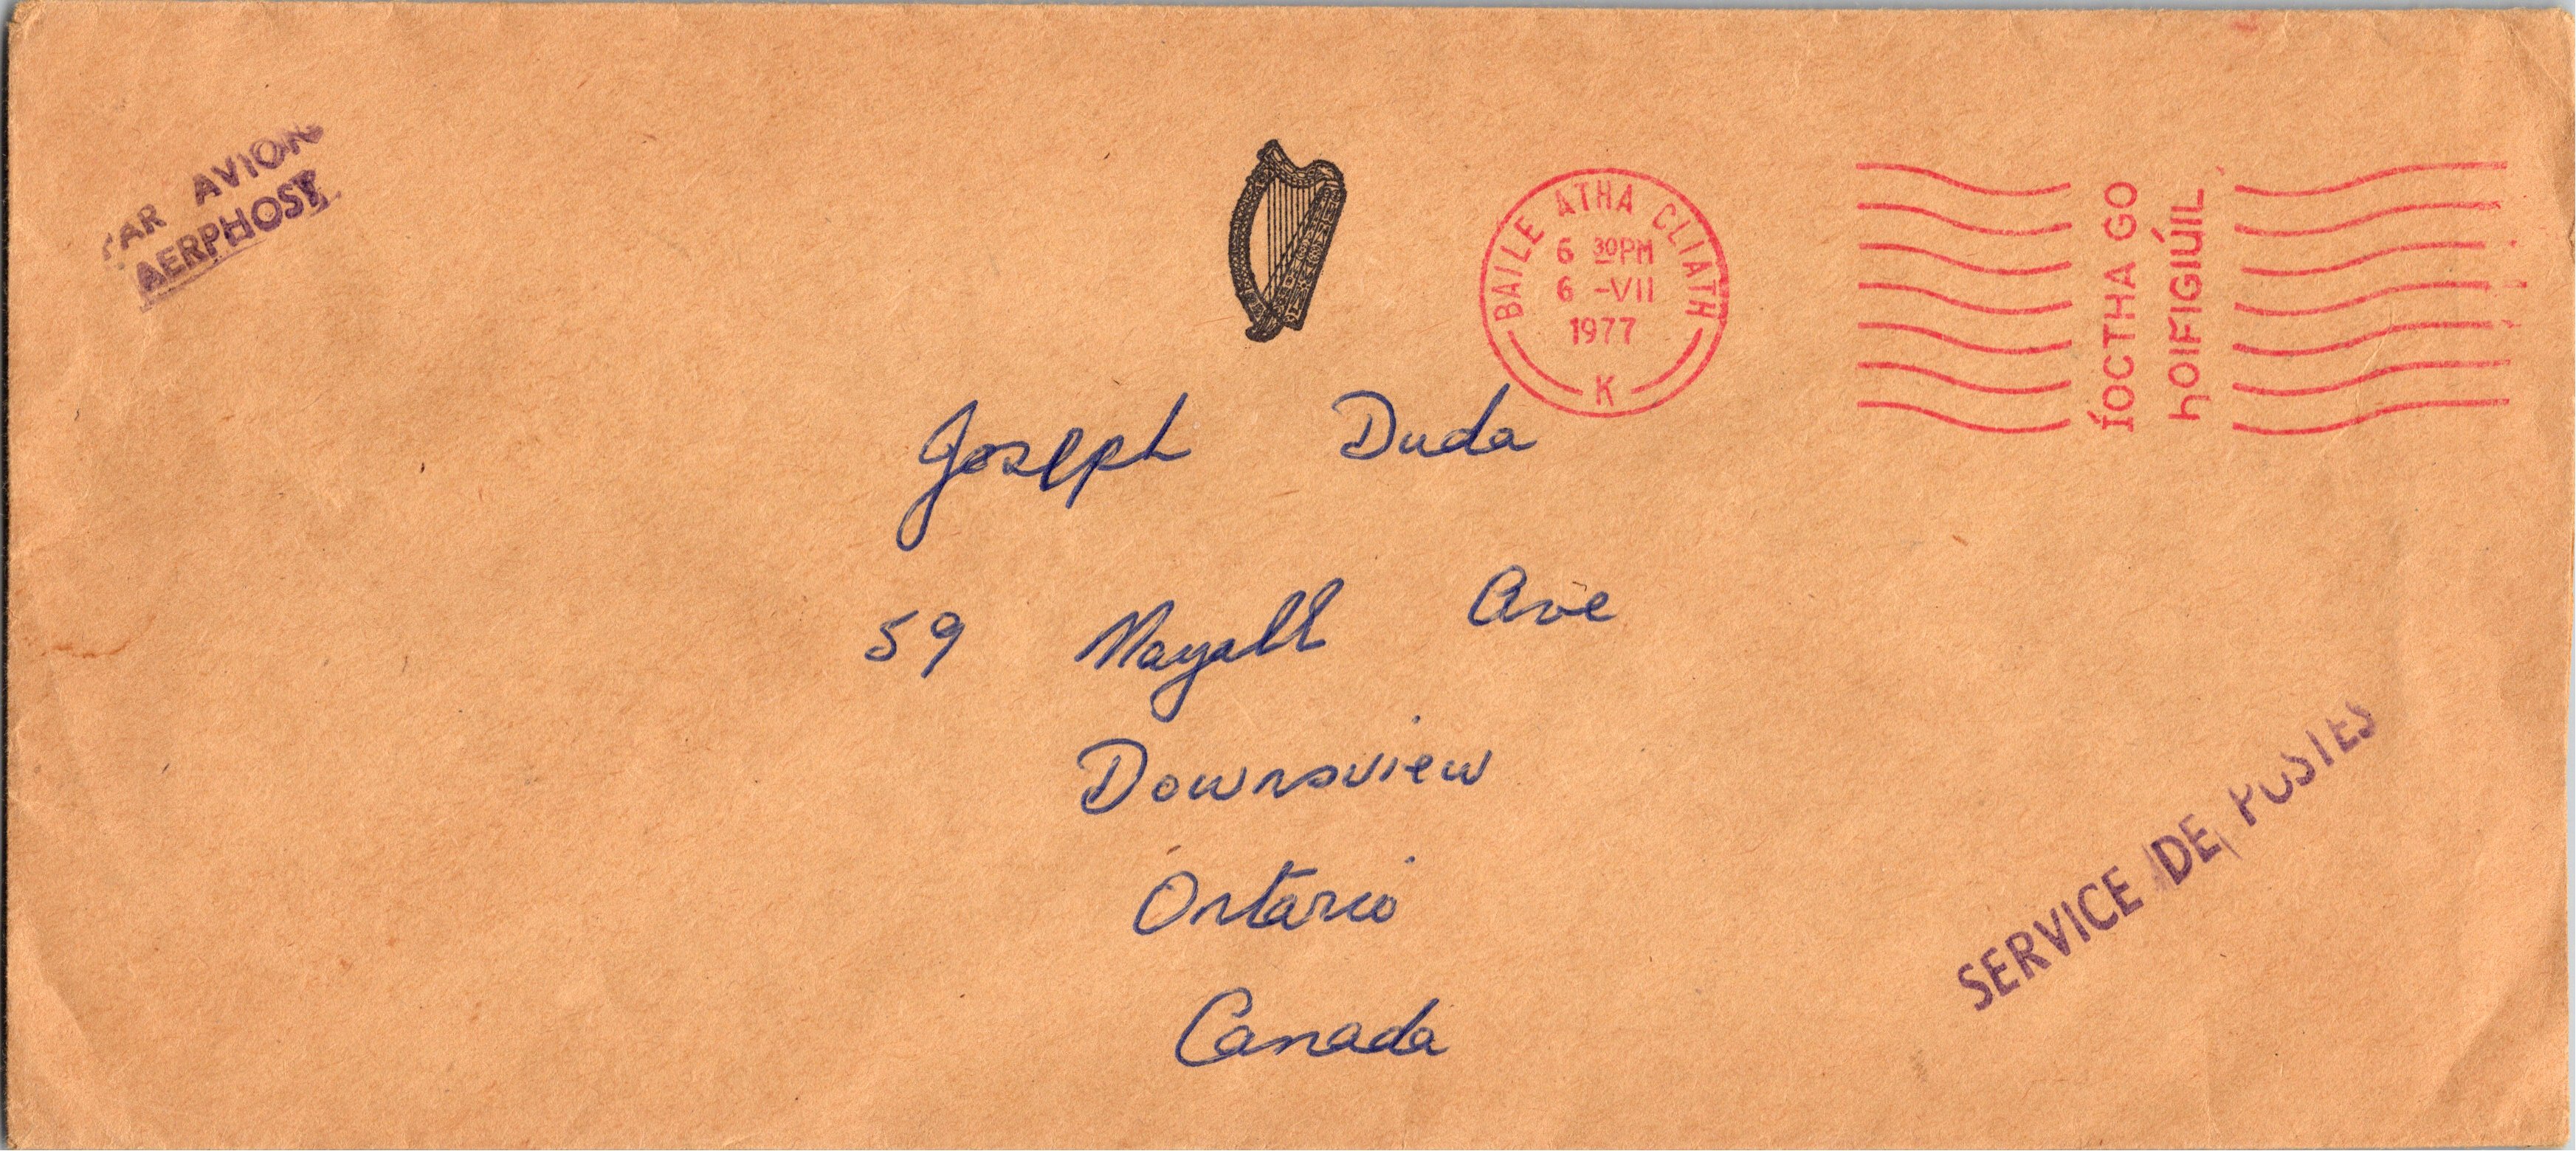 PAR AVION
AERPHOST
BAILE ATHA CLIATH
6 30PM
6 -VII
1977
K
ÍOCTHA GO
hOIFIGIÚIL
Joseph Duda
59 Mayall Ave
Downsview
Ontario
Canada
SERVICE DE POSTES